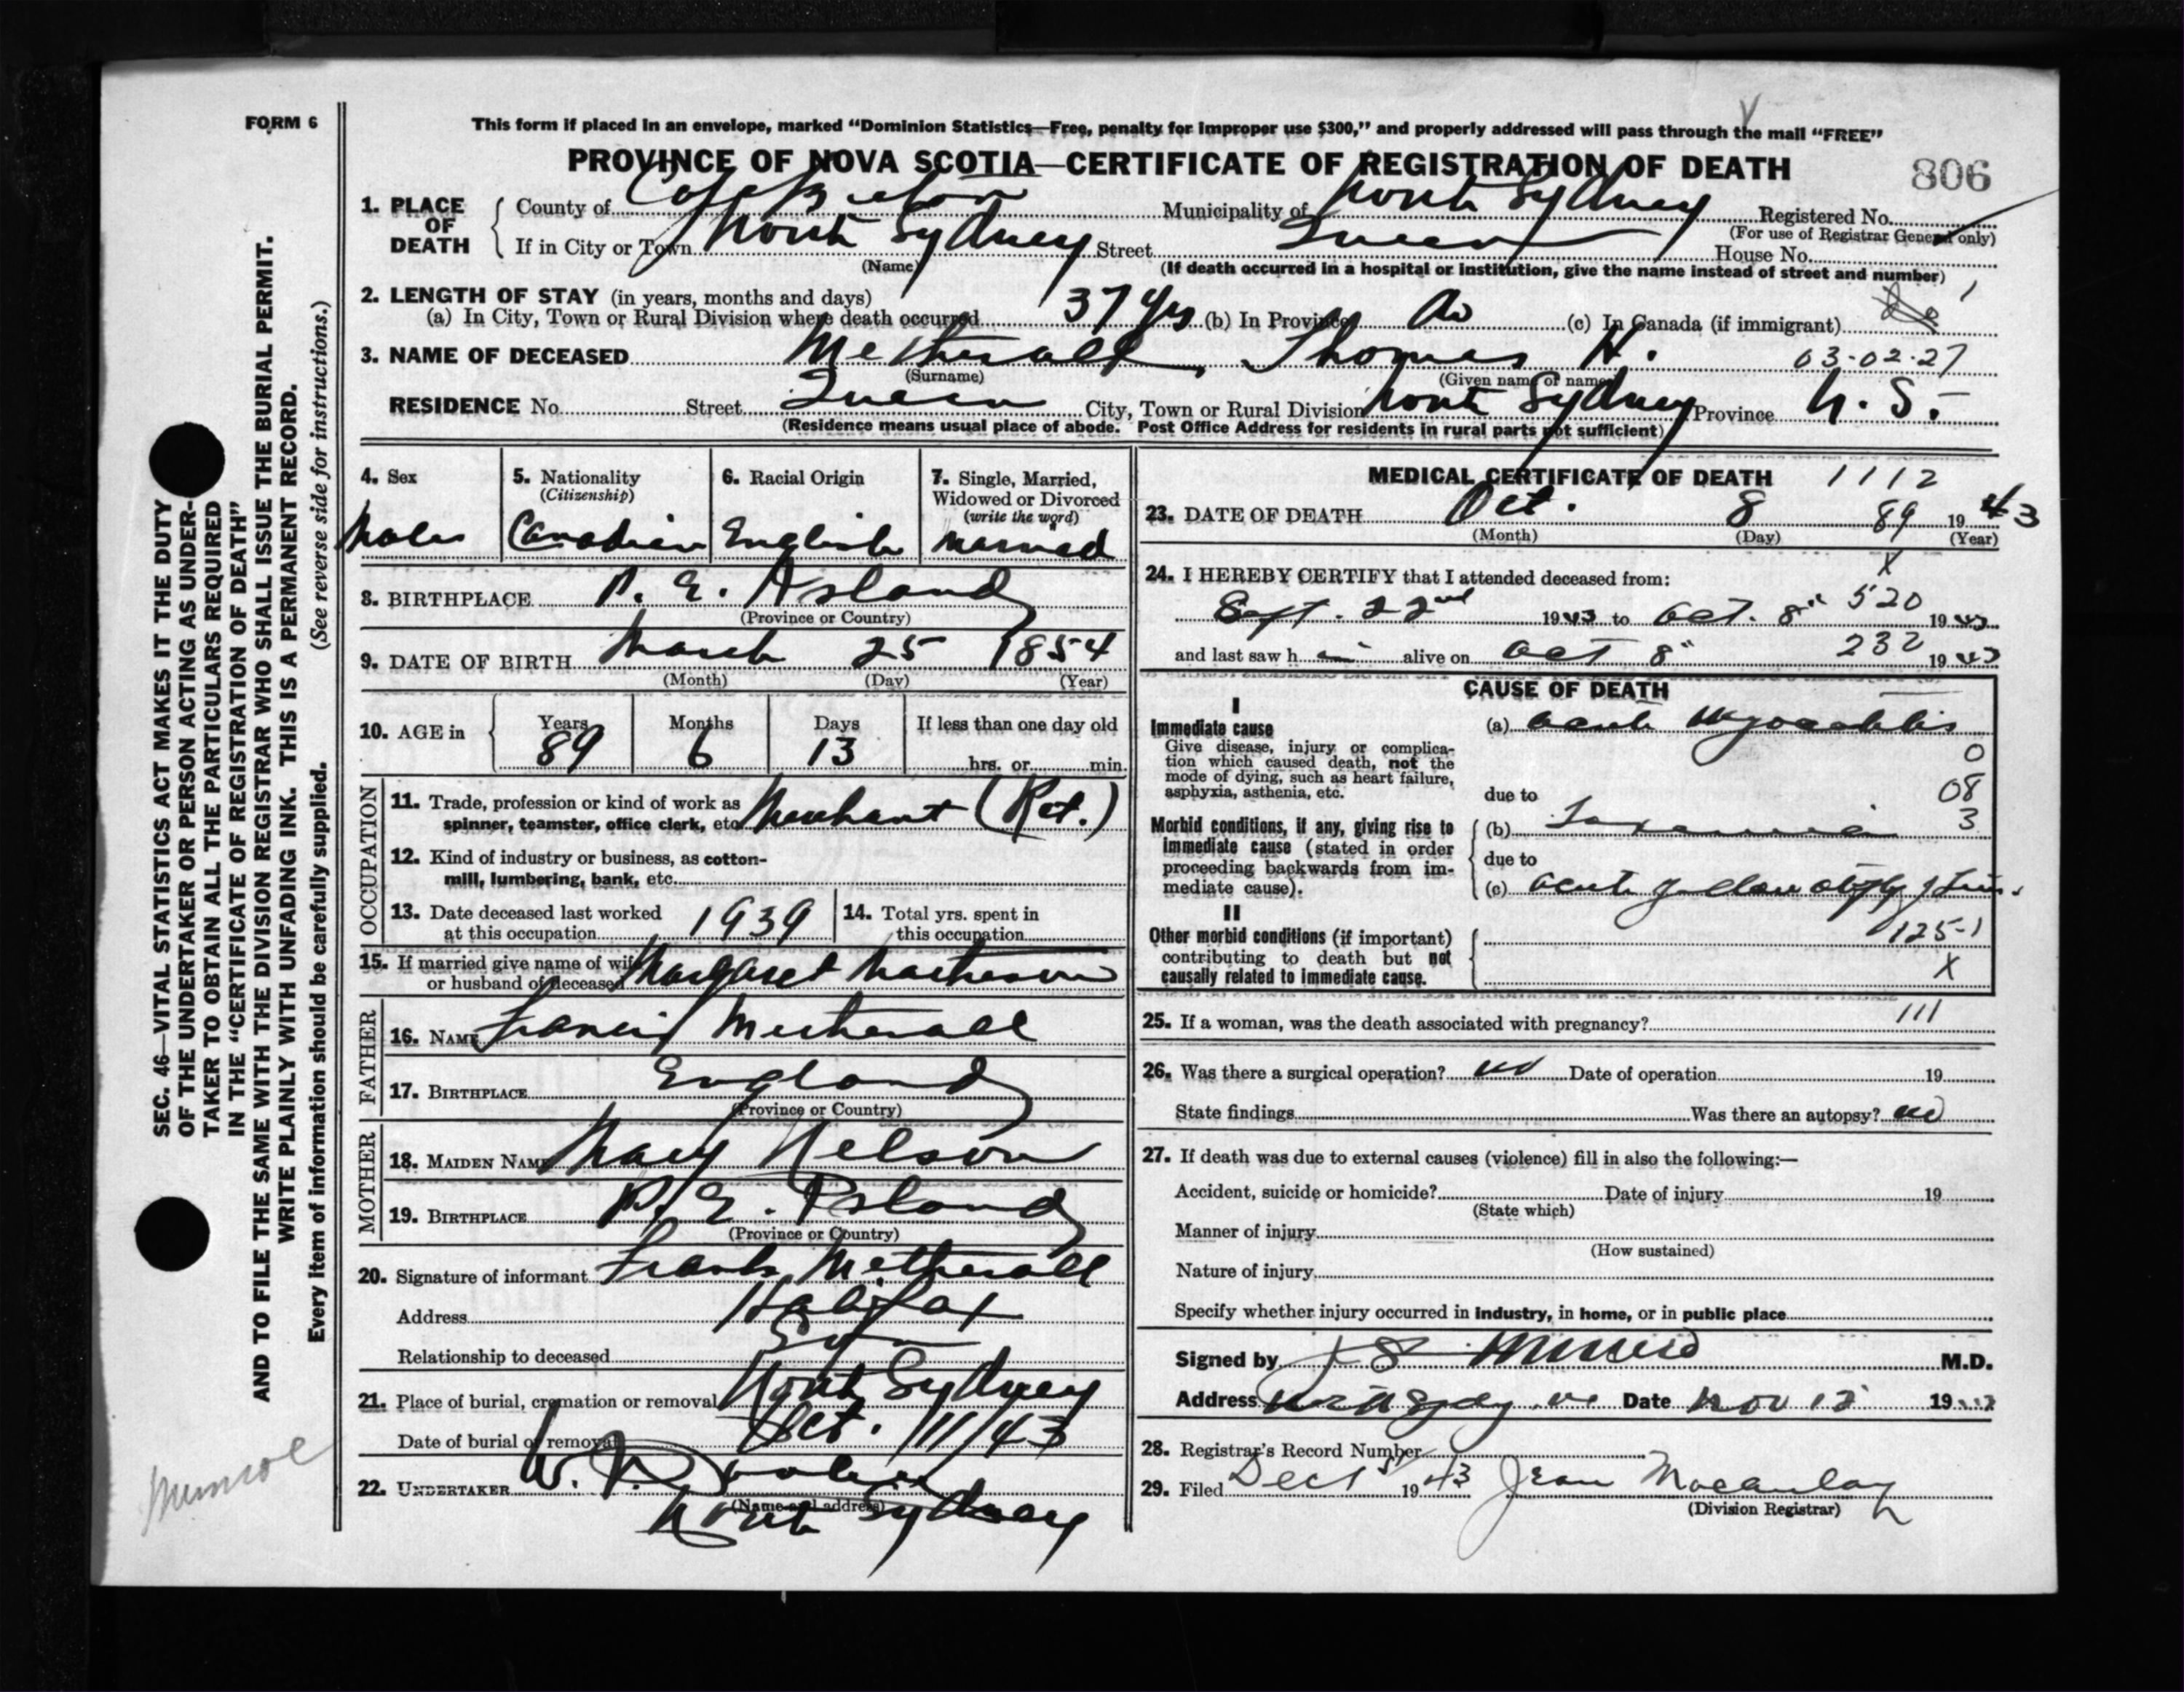 FORM 6
This form if placed in an envelope, marked “Dominion Statistics—Free, penalty for improper use $300,” and properly addressed will pass through the mail “FREE”
PROVINCE OF NOVA SCOTIA—CERTIFICATE OF REGISTRATION OF DEATH
806
1. PLACE OF DEATH
County of Cape Breton Municipality of North Sydney Registered No.
(For use of Registrar General only)
If in City or Town North Sydney Street Queen House No.
(Name)
(If death occurred in a hospital or institution, give the name instead of street and number)
2. LENGTH OF STAY (in years, months and days)
(a) In City, Town or Rural Division where death occurred 37 Yrs (b) In Province do (c) In Canada (if immigrant)
3. NAME OF DECEASED Metherall, Thomas H. 03-02-27
(Surname) (Given name or names)
RESIDENCE No. Street Queen City, Town or Rural Division North Sydney Province N.S.
(Residence means usual place of abode. Post Office Address for residents in rural parts not sufficient)
4. Sex
Male
5. Nationality
(Citizenship)
Canadian
6. Racial Origin
English
7. Single, Married,
Widowed or Divorced
(write the word)
Married
8. BIRTHPLACE P. E. Island
(Province or Country)
9. DATE OF BIRTH March 25 1854
(Month) (Day) (Year)
10. AGE in
Years Months Days If less than one day old
89 6 13 hrs. or min.
OCCUPATION
11. Trade, profession or kind of work as
spinner, teamster, office clerk, etc. Merchant (Ret.)
12. Kind of industry or business, as cotton-
mill, lumbering, bank, etc.
13. Date deceased last worked
at this occupation 1939
14. Total yrs. spent in
this occupation
15. If married give name of wife
or husband of deceased Margaret Matheson
FATHER
16. NAME Francis Metherall
17. BIRTHPLACE England
(Province or Country)
MOTHER
18. MAIDEN NAME Mary Nelson
19. BIRTHPLACE P. E. Island
(Province or Country)
20. Signature of informant Frank Metherall
Address Halifax
Relationship to deceased Son
21. Place of burial, cremation or removal North Sydney
Date of burial or removal Oct. 11/43
22. UNDERTAKER W.
(Name and address)
North Sydney
MEDICAL CERTIFICATE OF DEATH 1112
23. DATE OF DEATH Oct. 8 89 1943
(Month) (Day) (Year)
X
24. I HEREBY CERTIFY that I attended deceased from:
Sept. 22nd 1943 to Oct. 8" 520 1943
and last saw h im alive on Oct 8" 232 1943
CAUSE OF DEATH
I
Immediate cause
Give disease, injury or complica-
tion which caused death, not the
mode of dying, such as heart failure,
asphyxia, asthenia, etc.
(a) acute Myocarditis
0
due to 08
Morbid conditions, if any, giving rise to
immediate cause (stated in order
proceeding backwards from im-
mediate cause).
(b) Toxaemia 3
due to
(c) acute yellow atrophy of liver
II
Other morbid conditions (if important)
contributing to death but not
causally related to immediate cause.
125-1
X
25. If a woman, was the death associated with pregnancy? 111
26. Was there a surgical operation? no Date of operation 19
State findings Was there an autopsy? no
27. If death was due to external causes (violence) fill in also the following:—
Accident, suicide or homicide? Date of injury 19
(State which)
Manner of injury
(How sustained)
Nature of injury
Specify whether injury occurred in industry, in home, or in public place
Signed by Munro M.D.
Address Date Nov 1943
28. Registrar's Record Number
29. Filed Dec 1st 1943 Jean Macaulay
(Division Registrar)
SEC. 46—VITAL STATISTICS ACT MAKES IT THE DUTY
OF THE UNDERTAKER OR PERSON ACTING AS UNDER-
TAKER TO OBTAIN ALL THE PARTICULARS REQUIRED
IN THE “CERTIFICATE OF REGISTRATION OF DEATH”
AND TO FILE THE SAME WITH THE DIVISION REGISTRAR WHO SHALL ISSUE THE BURIAL PERMIT.
WRITE PLAINLY WITH UNFADING INK. THIS IS A PERMANENT RECORD.
Every item of information should be carefully supplied. (See reverse side for instructions.)
Munroe